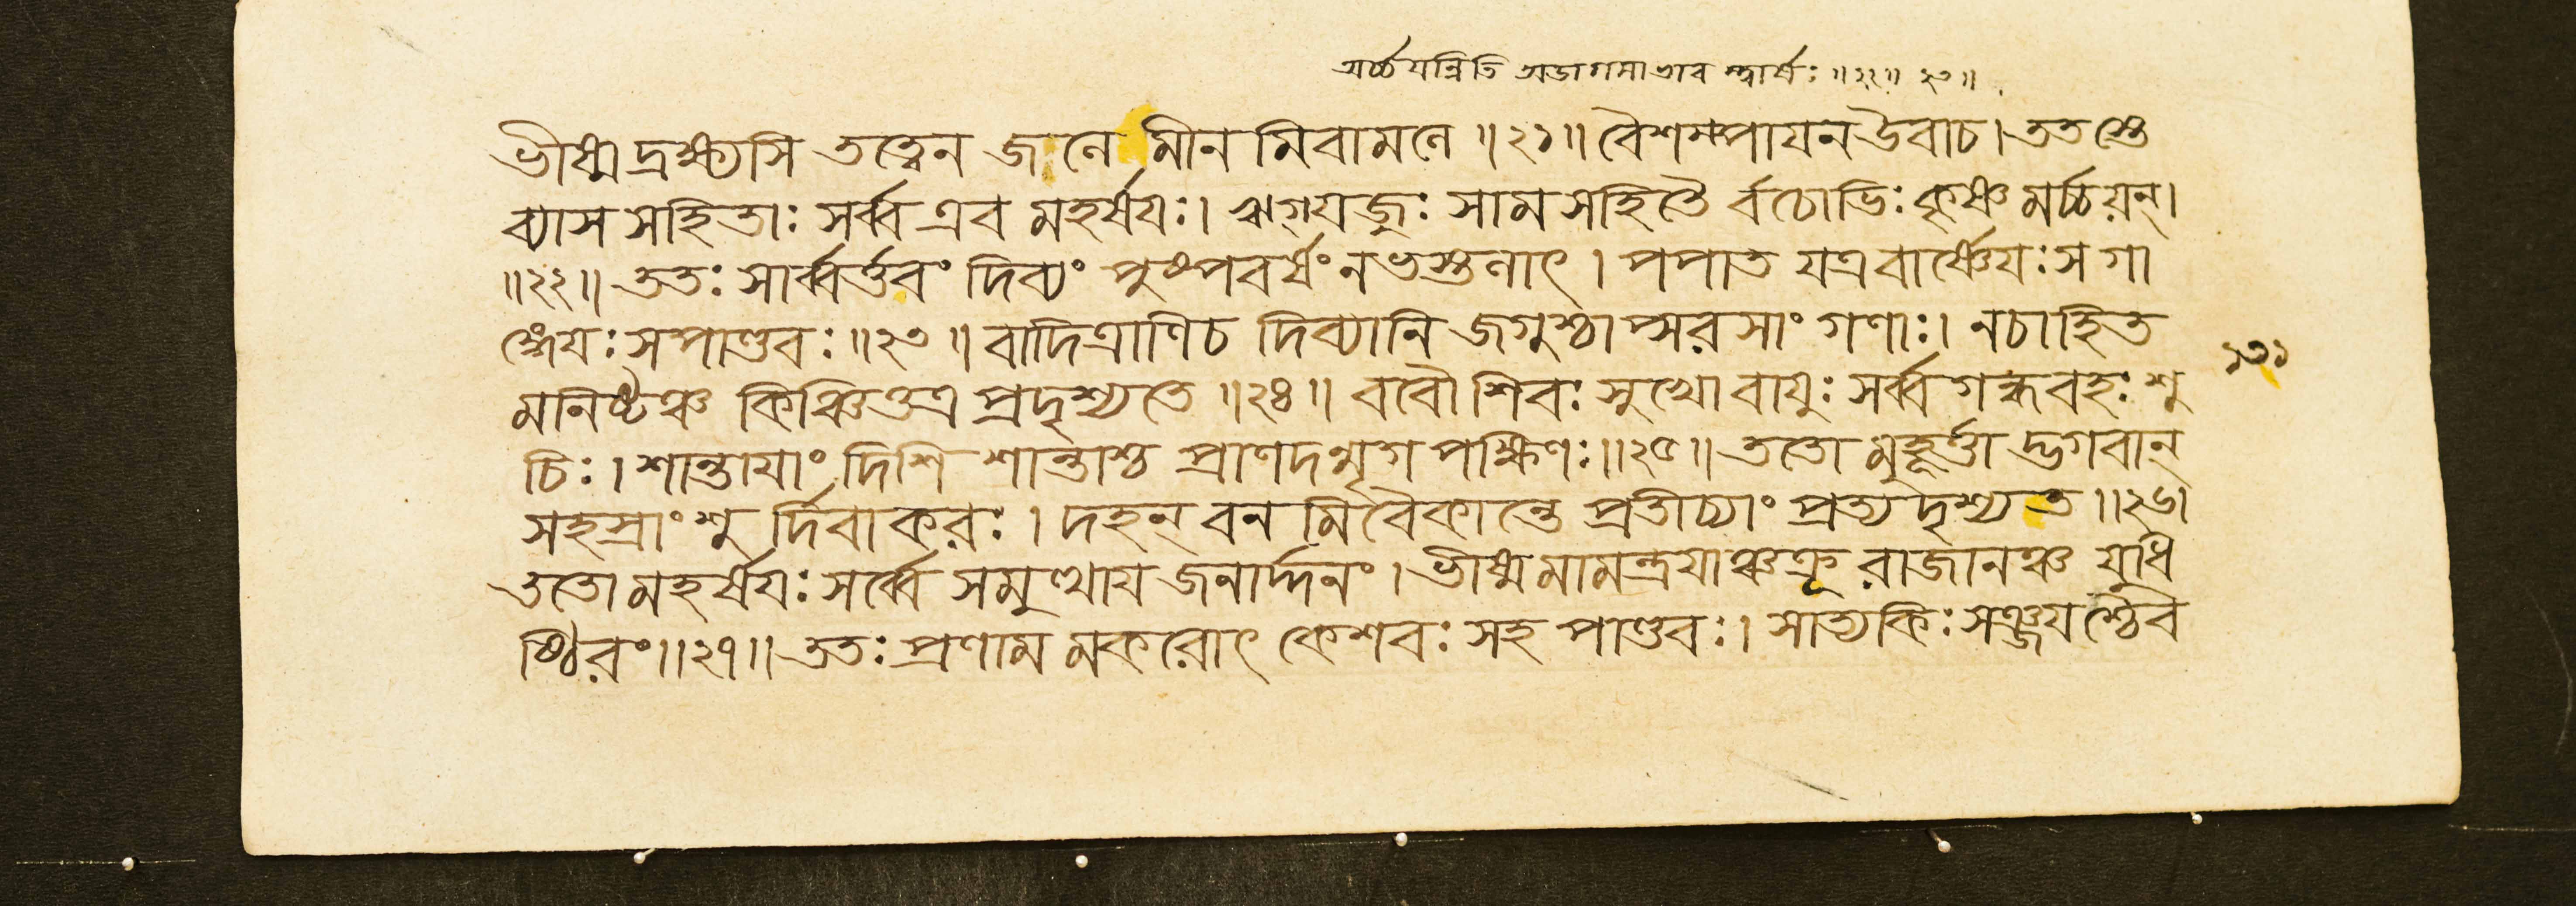 অর্চ্চয়ন্নিতি অডাগমাভাব স্ত্বার্ষঃ ॥২২॥ ২৩॥
ভীষ্ম দ্রক্ষ্যসি তত্ত্বেন জলে মীন মিবামলে ॥২১॥ বৈশম্পায়ন উবাচ। ততস্তে
ব্যাস সহিতাঃ সর্ব্ব এব মহর্ষয়ঃ। ঋগ্যজুঃ সাম সহিতৈ র্বচোভিঃ কৃষ্ণ মর্চ্চয়ন্।
॥২২॥ ততঃ সার্ব্বর্ত্তবং দিব্যং পুষ্পবর্ষং নভস্তলাৎ। পপাত যত্র বার্ষ্ণেয়ঃ স গা
ঙ্গেয়ঃ সপাণ্ডবঃ ॥২৩॥ বাদিত্রাণি চ দিব্যানি জগুশ্চাপ্সরসাং গণাঃ। নচাহিত
মনিষ্টঞ্চ কিঞ্চিত্তত্র প্রদৃশ্যতে ॥২৪॥ ববৌ শিবঃ সুখো বায়ুঃ সর্ব্ব গন্ধবহঃ শু
চিঃ। শান্তায়াং দিশি শান্তাশ্চ প্রাণদন্মৃগ পক্ষিণঃ॥২৫॥ ততো মুহূর্ত্তা দ্ভগবান্
সহস্রাংশু র্দিবাকরঃ। দহন্ বন মিবৈকান্তে প্রতীচ্যাং প্রত্যদৃশ্যত ॥২৬।
ততো মহর্ষয়ঃ সর্ব্বে সমুত্থায় জনার্দ্দনং। ভীষ্ম মামন্ত্রয়াঞ্চক্রূ রাজানঞ্চ যুধি
ষ্ঠিরং॥২৭॥ ততঃ প্রণাম মকরোৎ কেশবঃ সহ পাণ্ডবঃ। সাত্যকিঃ সঞ্জয়শ্চৈব
১৩১